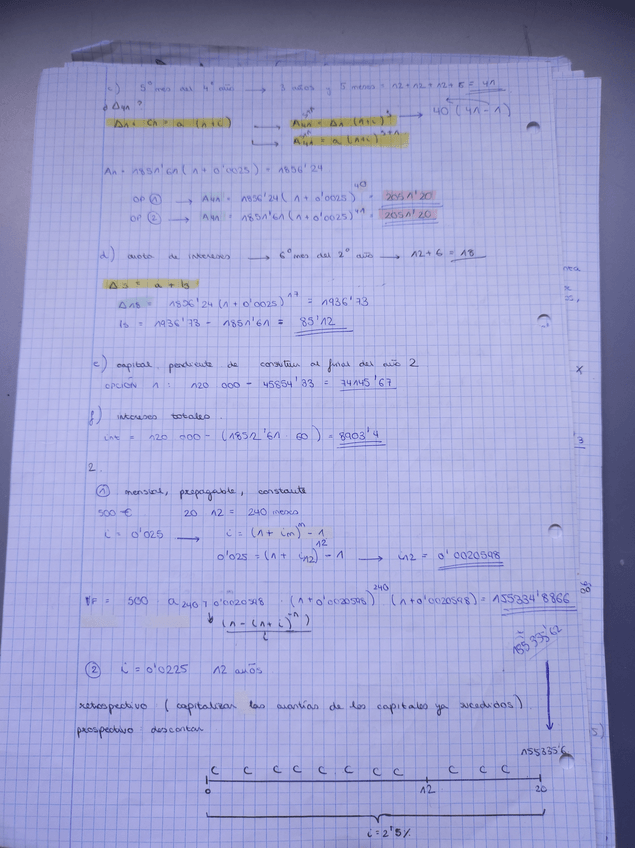 c) 5º mes del 4º año → 3 años y 5 meses = 12+12+12+5 = 41
Δn + Cn = a (1+i)
A4n = Δn (1+i)
→ 40 (41-1)
A4n = a (1+i)^s+1
An = 1851'61 (1+0'0025) = 1856'24
OP ① → A41 = 1856'24 (1+0'0025)^40 = 2051'20
OP ② → A41 = 1851'61 (1+0'0025)^41 = 2051'20
d) cuota de intereses → 6º mes del 2º año → 12+6 = 18
Δs = a + Is
Δ18 = 1856'24 (1+0'0025)^17 = 1936'73
Is = 1936'73 - 1851'61 = 85'12
e) capital pendiente de al final del año 2
OPCIÓN 1: 120 000 - 45854'33 = 74145'67
f) intereses totales.
int = 120 000 - (1852'61 · 60) = 8903'4
2.
① mensual, prepagable, constante
500 € 20 · 12 = 240 meses
i = 0'025 → i = (1+im)^m - 1
0'025 = (1+i12)^12 - 1 → i12 = 0'0020598
VF = 500 · a 240 7 0'0020598 · (1+0'0020598)^240 (1+0'0020598) = 155334'8866
(1-(1+i)^-n)
i
155335'62
② i = 0'0225 12 años
retrospectivo (capitalizar las cuantías de los capitales ya sucedidos)
prospectivo descontar
155335'6
C C C C C C C C C C C
0 12 20
i = 2'5%